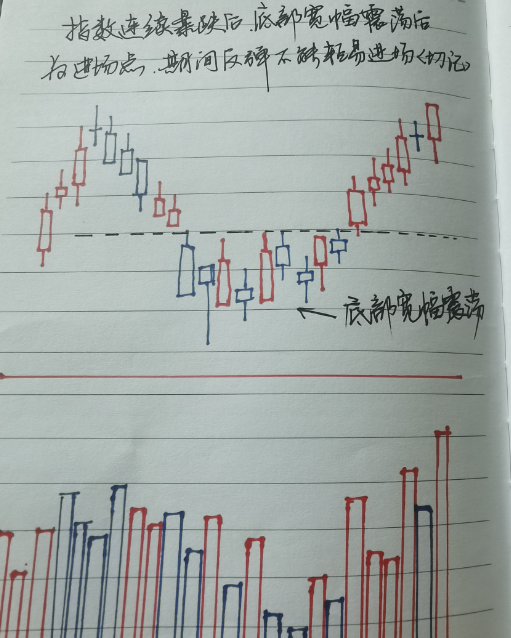 指数连续暴跌后,底部宽幅震荡后
为进场点,期间反弹不能轻易进场《切记》
底部宽幅震荡